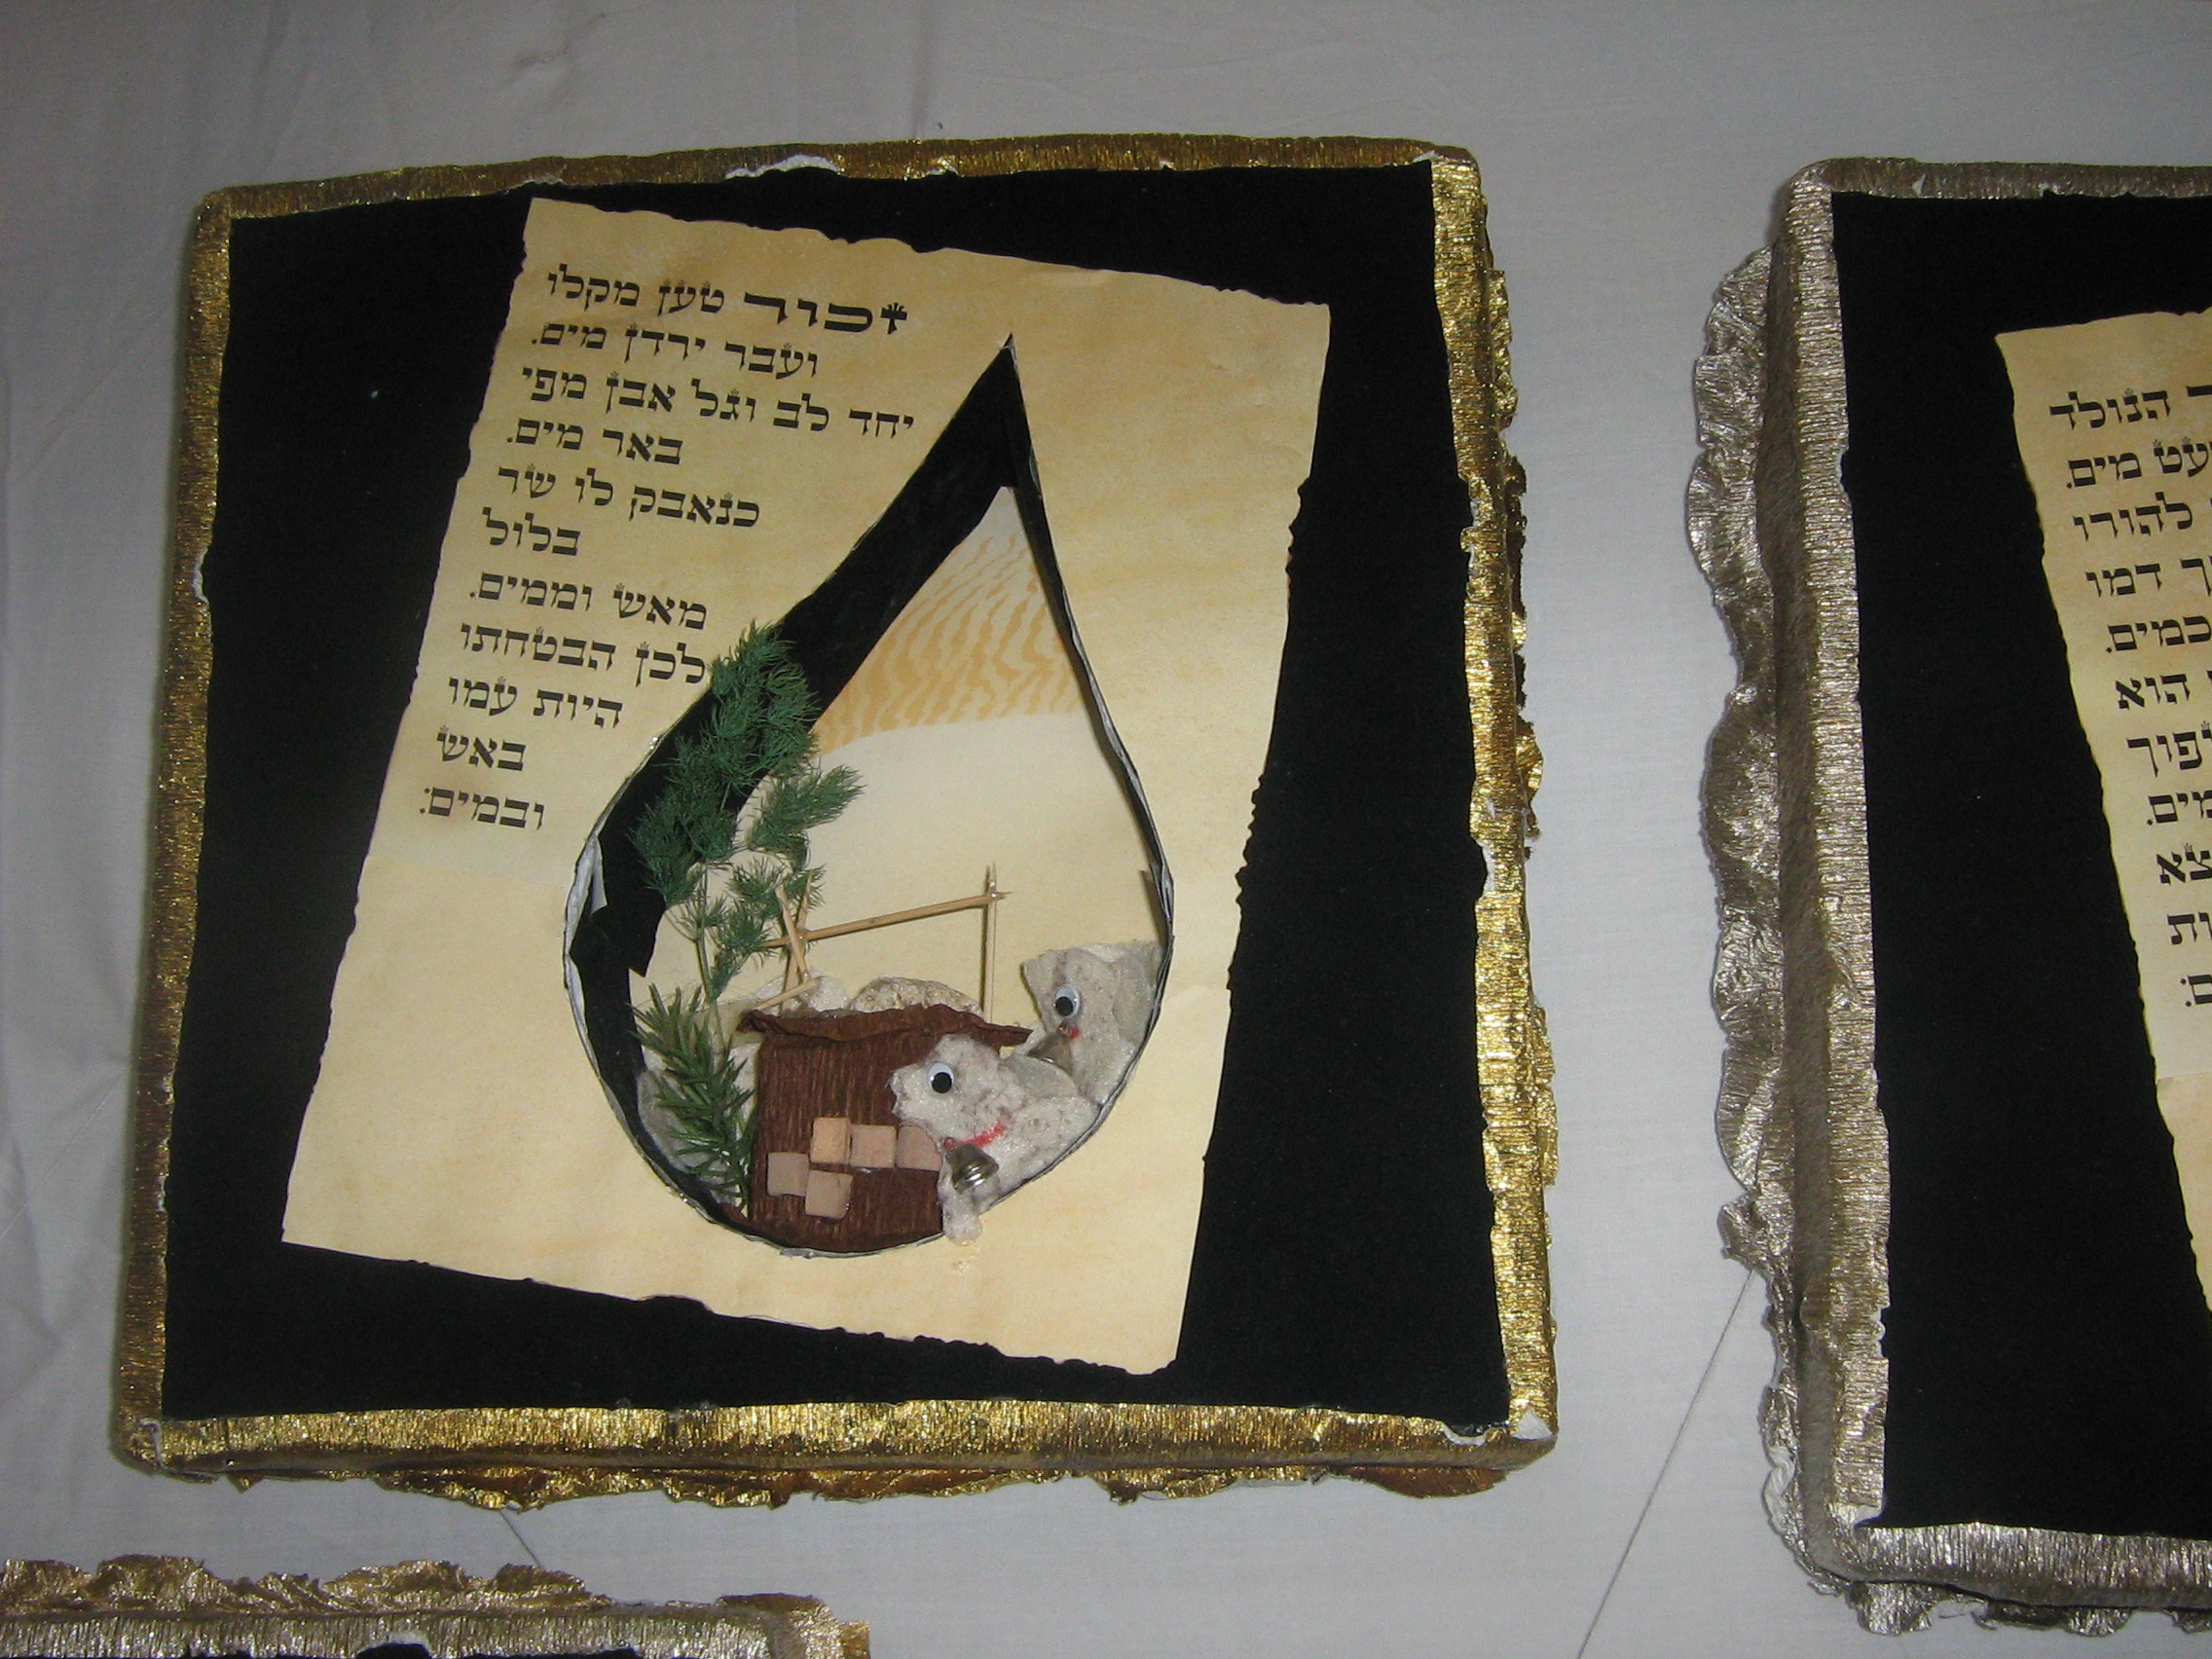 זכור טען מקלו
ועבר ירדן מים.
יחד לב וגל אבן מפי
באר מים.
כנאבק לו שר
בלול
מאש וממים.
לכן הבטחתו
היות עמו
באש
ובמים:
הנולד
מים.
להורו
דמו
כמים.
הוא